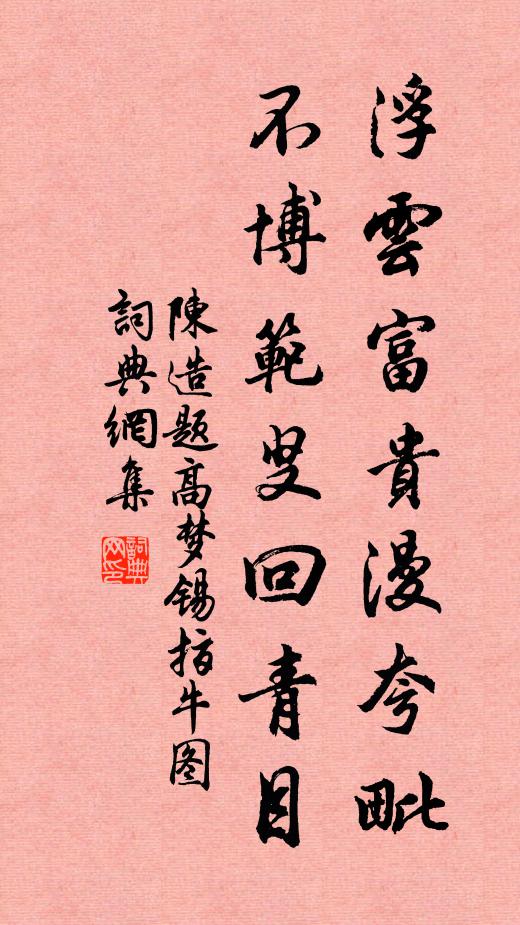 浮雲富貴漫夸毗
不博範叟回青目
陳造题高梦锡指牛图
詞典網集
詞典網印